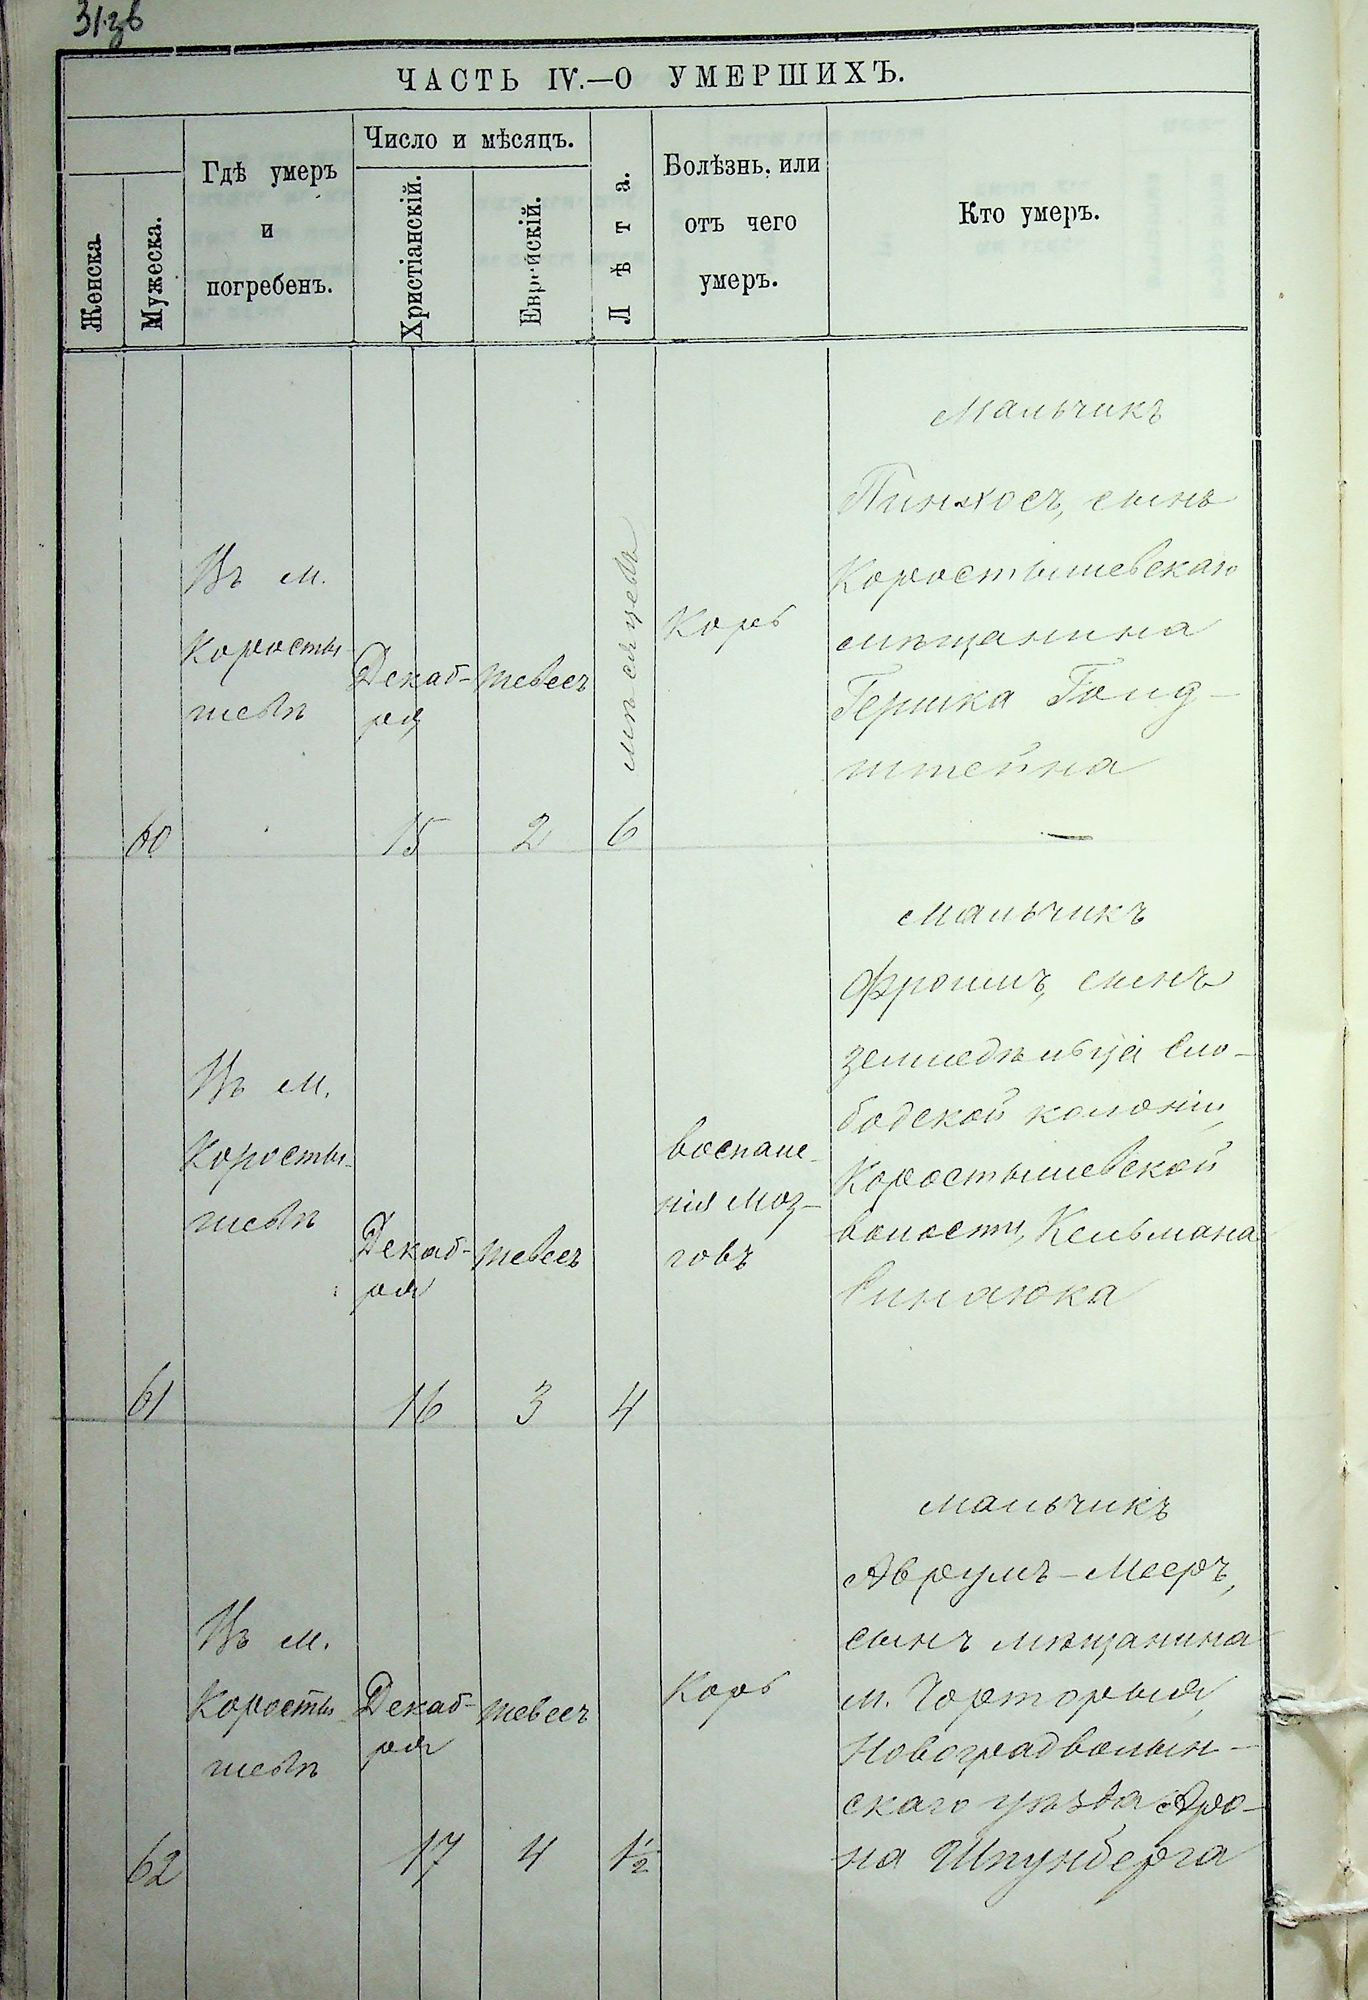 31зв
ЧАСТЬ IV.—О УМЕРШИХЪ.
Женска.
Мужеска.
Гдѣ умеръ
и
погребенъ.
Число и мѣсяцъ.
Христіанскій.
Еврейскій.
Лѣта.
Болѣзнь, или
отъ чего
умеръ.
Кто умеръ.
60
Въ м.
Коросты-
шевѣ
Декаб-
ря
15
тевесъ
2
мѣсяцевъ
6
Корь
Мальчикъ
Пинхосъ, сынъ
Коростышевскаго
мѣщанина
Гершка Голд-
штейна
61
Въ м.
Коросты-
шевѣ
Декаб-
ря
16
тевесъ
3
4
воспале-
нія моз-
говъ
Мальчикъ
Фроимъ, сынъ
земледѣльца Сло-
бодской колоніи,
Коростышевской
волости, Кельмана
Синаюка
62
Въ м.
Коросты-
шевѣ
Декаб-
ря
17
тевесъ
4
1½
Корь
мальчикъ
Аврумъ-Мееръ,
сынъ мѣщанина
м. Чорторыя,
Новоградволын-
скаго уѣзда Аро-
на Шпунберга